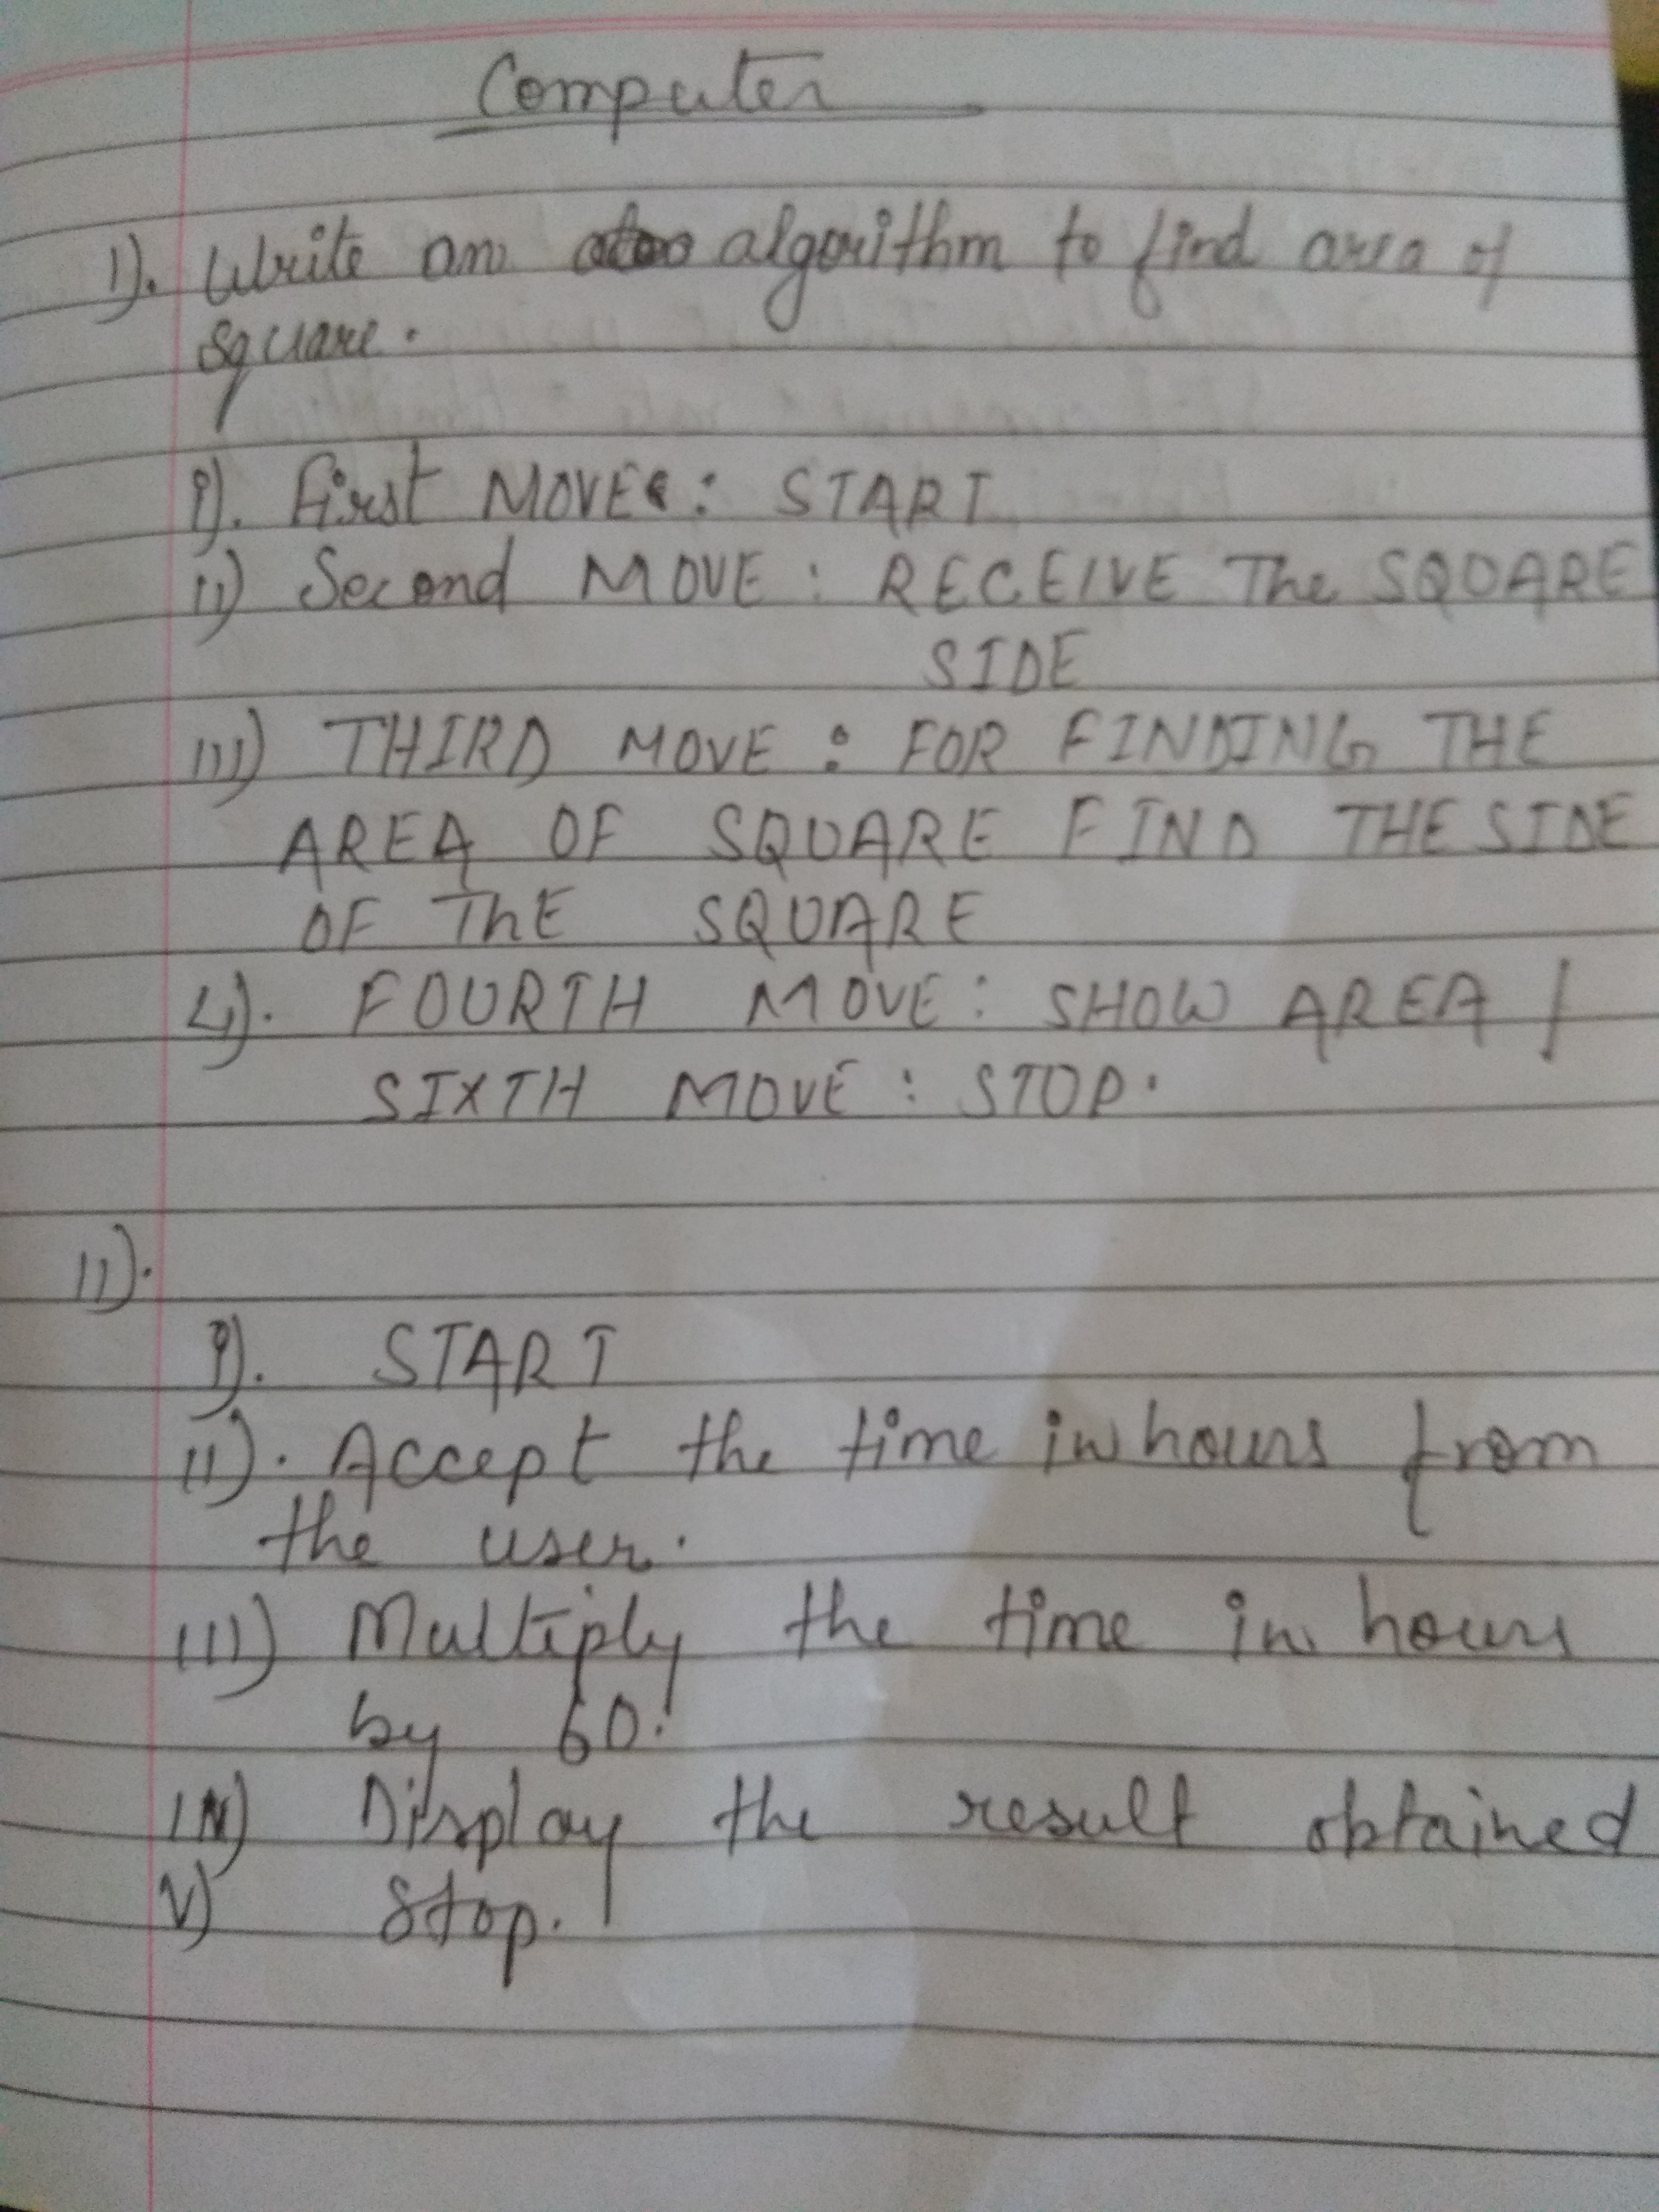 Computer
1). Write an algorithm to find area of
square.
i). First MOVE: START
ii) Second MOVE: RECEIVE The SQUARE
SIDE
iii) THIRD MOVE: FOR FINDING THE
AREA OF SQUARE FIND THE SIDE
OF ThE SQUARE
4). FOURTH MOVE: SHOW AREA /
SIXTH MOVE: STOP.
11).
i). START
ii). Accept the time in hours from
the user.
iii) Multiply the time in hours
by 60.
iv) Display the result obtained
v) Stop.